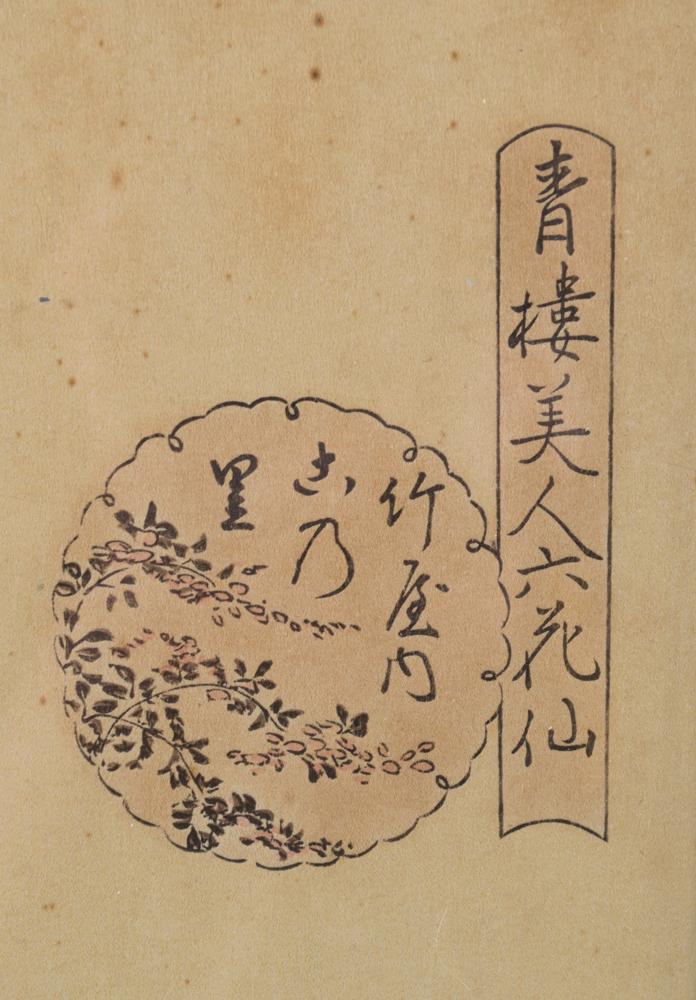 青樓美人六花仙
竹屋内
古乃
里